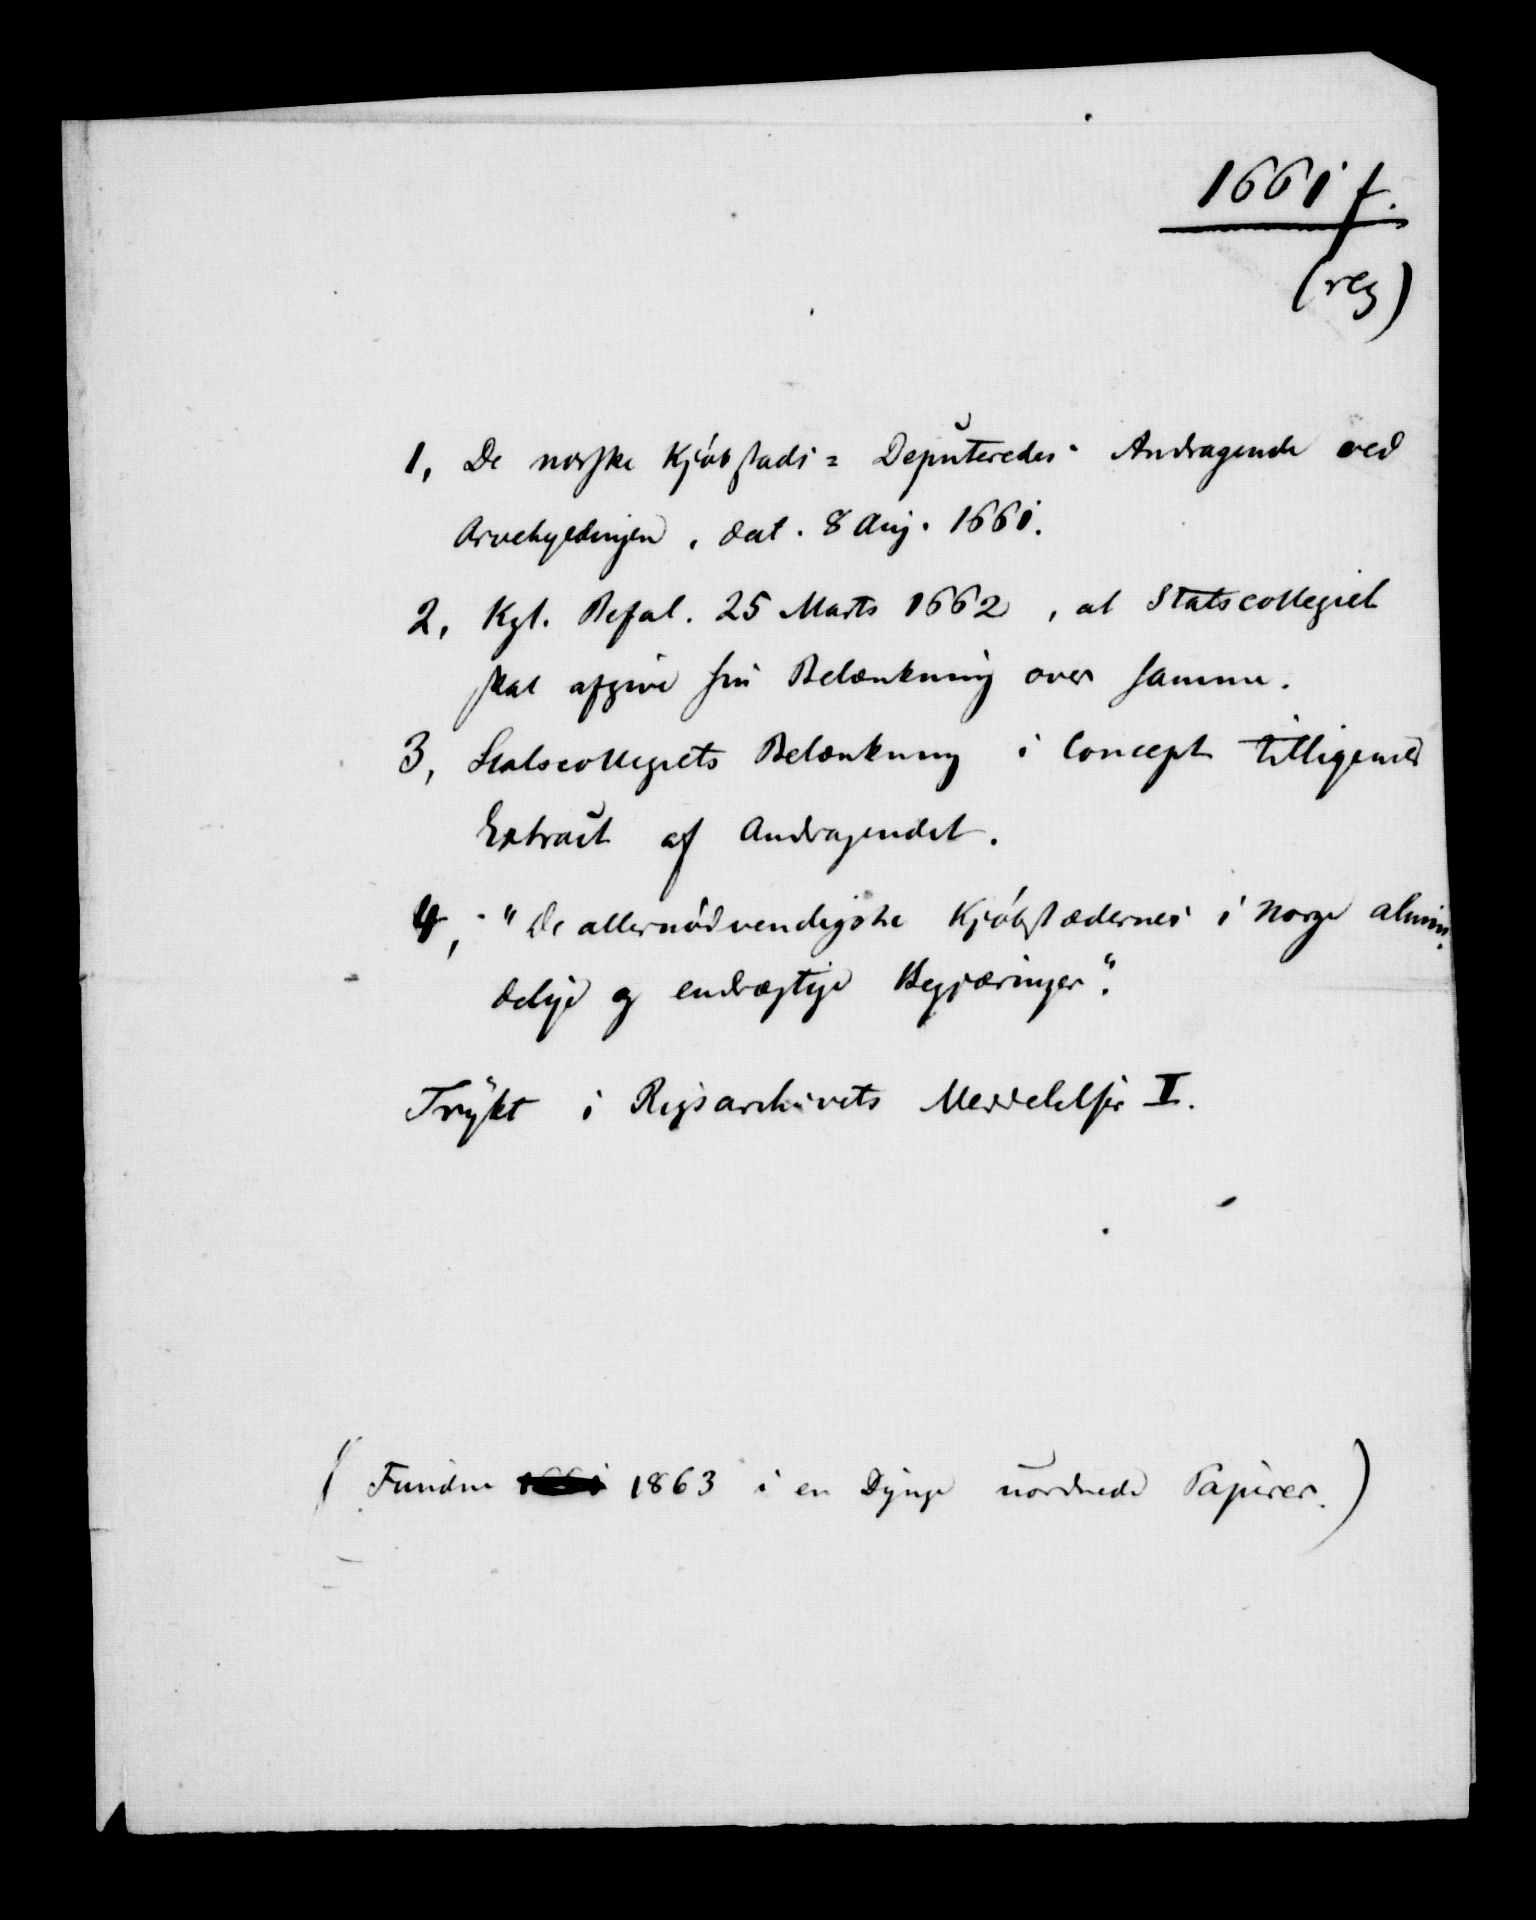 1661 f.
(reg)
1, De norske Kjøbstads= Deputeredes Andragende ved
Arvehyldingen, dat. 8 Aug. 1661.
2, Kgl. Befal. 25 Marts 1662, at Statscollegiet
skal afgive sin Betænkning over samme.
3, Statscollegiets Betænkning i Concept tilligemed
Extract af Andragendet.
4, "De allernødvendigste Kjøbstædernes i Norge almin-
delige og endrægtige Begjæringer".
Trykt i Rigsarchivets Meddelelser I.
(Fundne 1863 i en Dynge uordnede Papirer.)